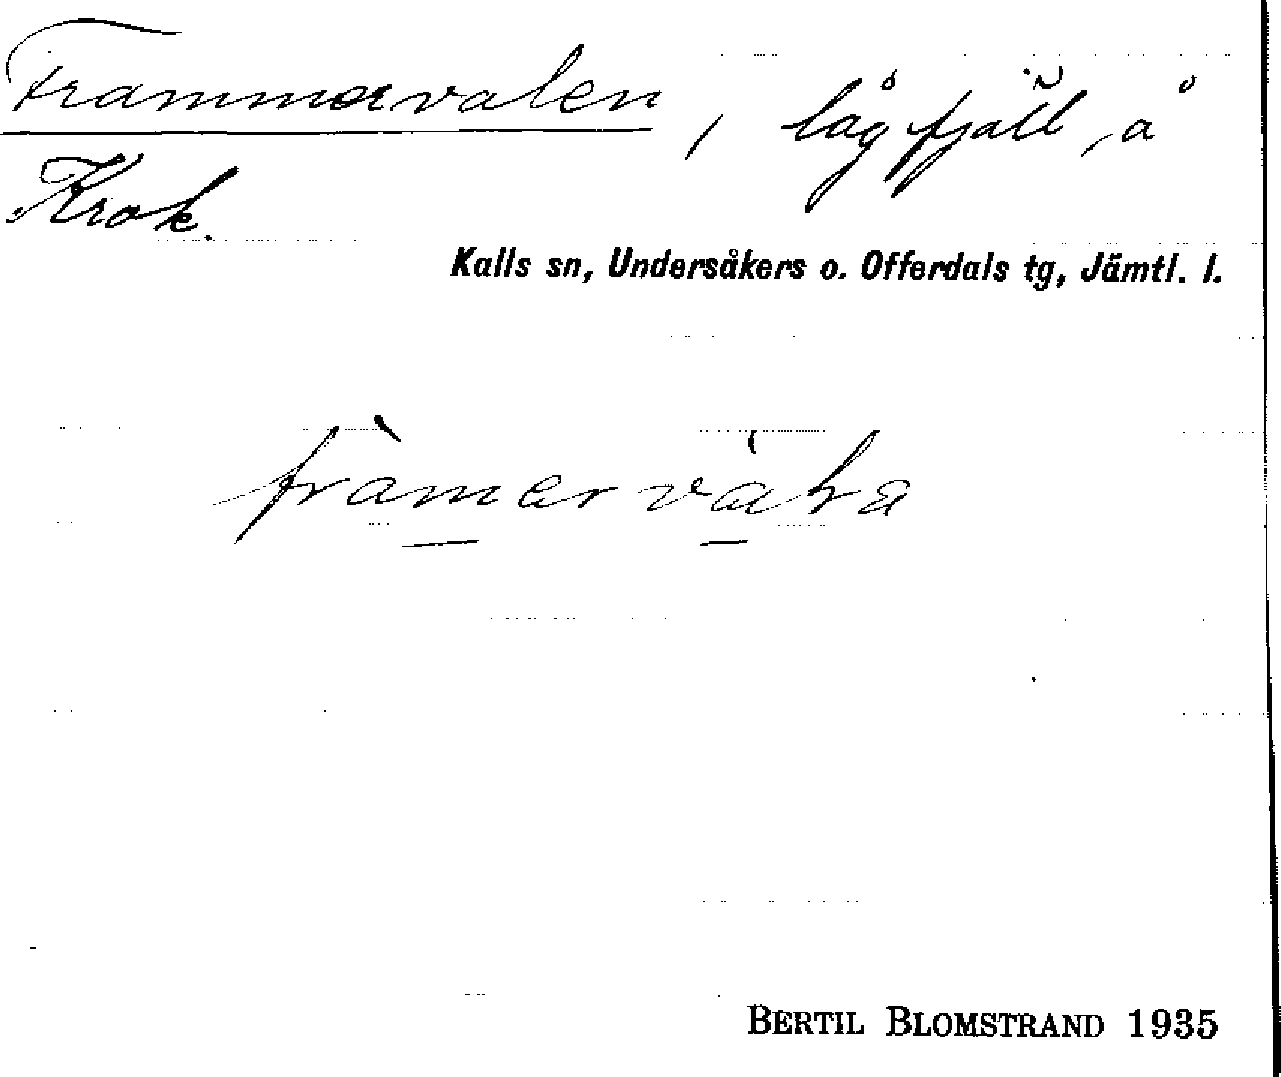 Frammervalen, lågfjäll, å
Krok.
Kalls sn, Undersåkers o. Offerdals tg, Jämtl. l.
BERTIL BLOMSTRAND 1935